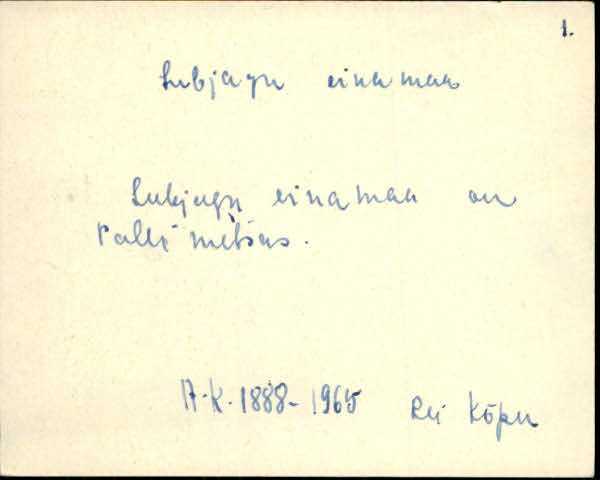 1.
Lubjagu einamaa
Lubjagu einamaa on
Palli metsas.
A.K. 1888-1965 Rei Kõpu